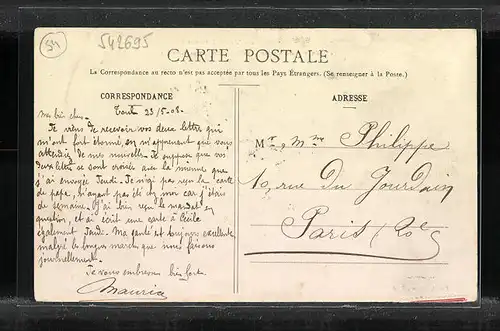 54
542695
CARTE POSTALE
La Correspondance au recto n'est pas acceptée par tous les Pays Étrangers. (Se renseigner à la Poste.)
CORRESPONDANCE
Toul 23/5-08-
Mes biens chers
Je viens de recevoir vos deux lettres qui
m'ont fort étonné, en m'apprenant que vous
attendiez de mes nouvelles. Je suppose que vos
deux lettres se sont croisées avec la mienne que
j'ai envoyée Jeudi. Je n'ai pas reçu la carte
de papa, n'ayant pas été moi car j'étais
de semaine. J'ai bien reçu le mandat en
question, et ai écrit une carte à Cécile
également Jeudi. Ma santé est toujours excellente
malgré les longues marches que nous faisons
journellement.
Je vous embrasse bien fort
Maurice
ADRESSE
Mr & Mme Philippe
10, rue Du Jourdain
Paris (20e)